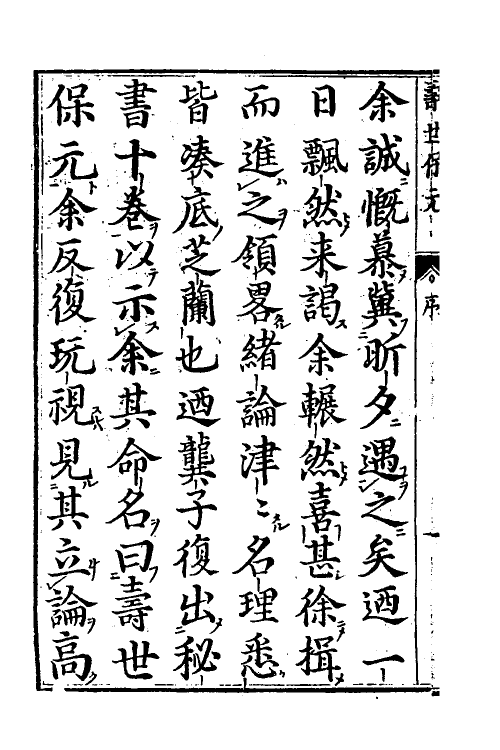 壽世保元
序
余誠慨慕冀昕夕遇之矣迺一
日飄然来謁余輾然喜甚徐揖
而進之領畧緒論津〻名理悉
皆湊底芝蘭也迺龔子復出秘
書十巻以示余其命名曰壽世
保元余反復玩視見其立論高